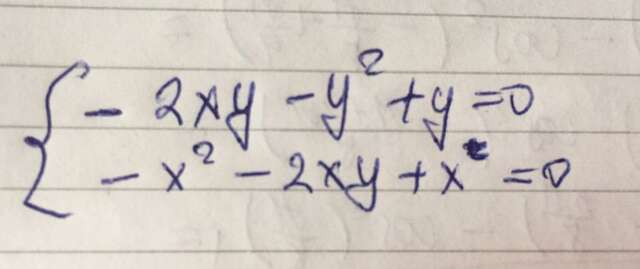 - 2xy - y² + y = 0
- x² - 2xy + x = 0